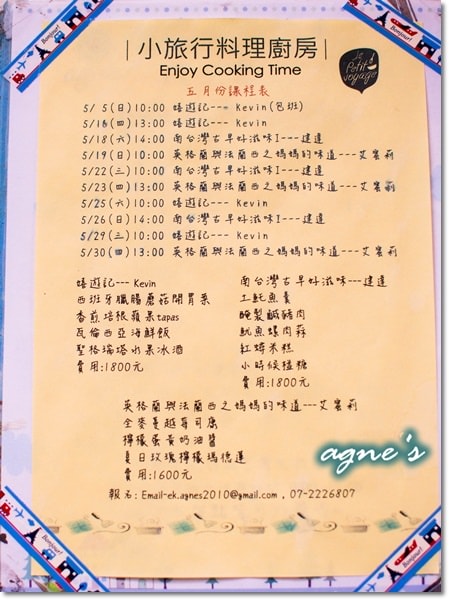 Bonjour!
Bonjour!
|小旅行料理廚房|
Enjoy Cooking Time
Le
Petit
Voyage
五月份課程表
5/ 5(日)10:00 嬉遊記--- Kevin(包班)
5/16(四)13:00 嬉遊記--- Kevin
5/18(六)14:00 南台灣古早好滋味I---建達
5/19(日)10:00 英格蘭與法蘭西之媽媽的味道---艾蜜莉
5/22(三)10:00 南台灣古早好滋味I---建達
5/23(四)13:00 英格蘭與法蘭西之媽媽的味道---艾蜜莉
5/25(六)10:00 嬉遊記--- Kevin
5/26(日)14:00 南台灣古早好滋味I---建達
5/29(三)10:00 嬉遊記--- Kevin
5/30(四)13:00 英格蘭與法蘭西之媽媽的味道---艾蜜莉
嬉遊記--- Kevin
西班牙臘腸蘑菇開胃菜
香煎培根蘋果tapas
瓦倫西亞海鮮飯
聖格瑞塔水果冰酒
費用:1800元
南台灣古早好滋味---建達
土魠魚羹
醃製鹹豬肉
魷魚螺肉蒜
紅蟳米糕
小時候椪糖
費用:1800元
英格蘭與法蘭西之媽媽的味道---艾蜜莉
全麥蔓越莓司康
檸檬蛋黃奶油醬
夏日玫瑰檸檬瑪德蓮
費用:1600元
agne's
報名:Email-ek.agnes2010@gmail.com , 07-2226807
Bonjour!
Bonjour!